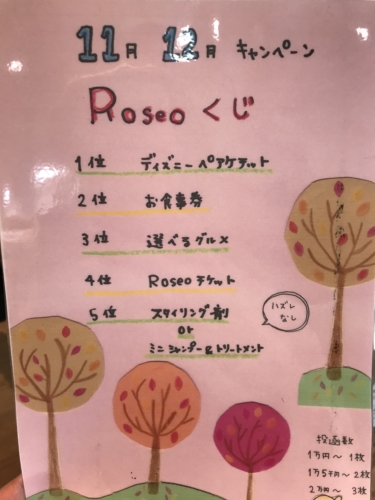 11月 12月 キャンペーン
Roseo くじ
1位 ディズニーペアチケット
2位 お食事券
3位 選べるグルメ
4位 Roseoチケット
5位 スタイリング剤
or
ミニシャンプー&トリートメント
ハズレ
なし
投函数
1万円〜 1枚
1万5千〜 2枚
2万円〜 3枚